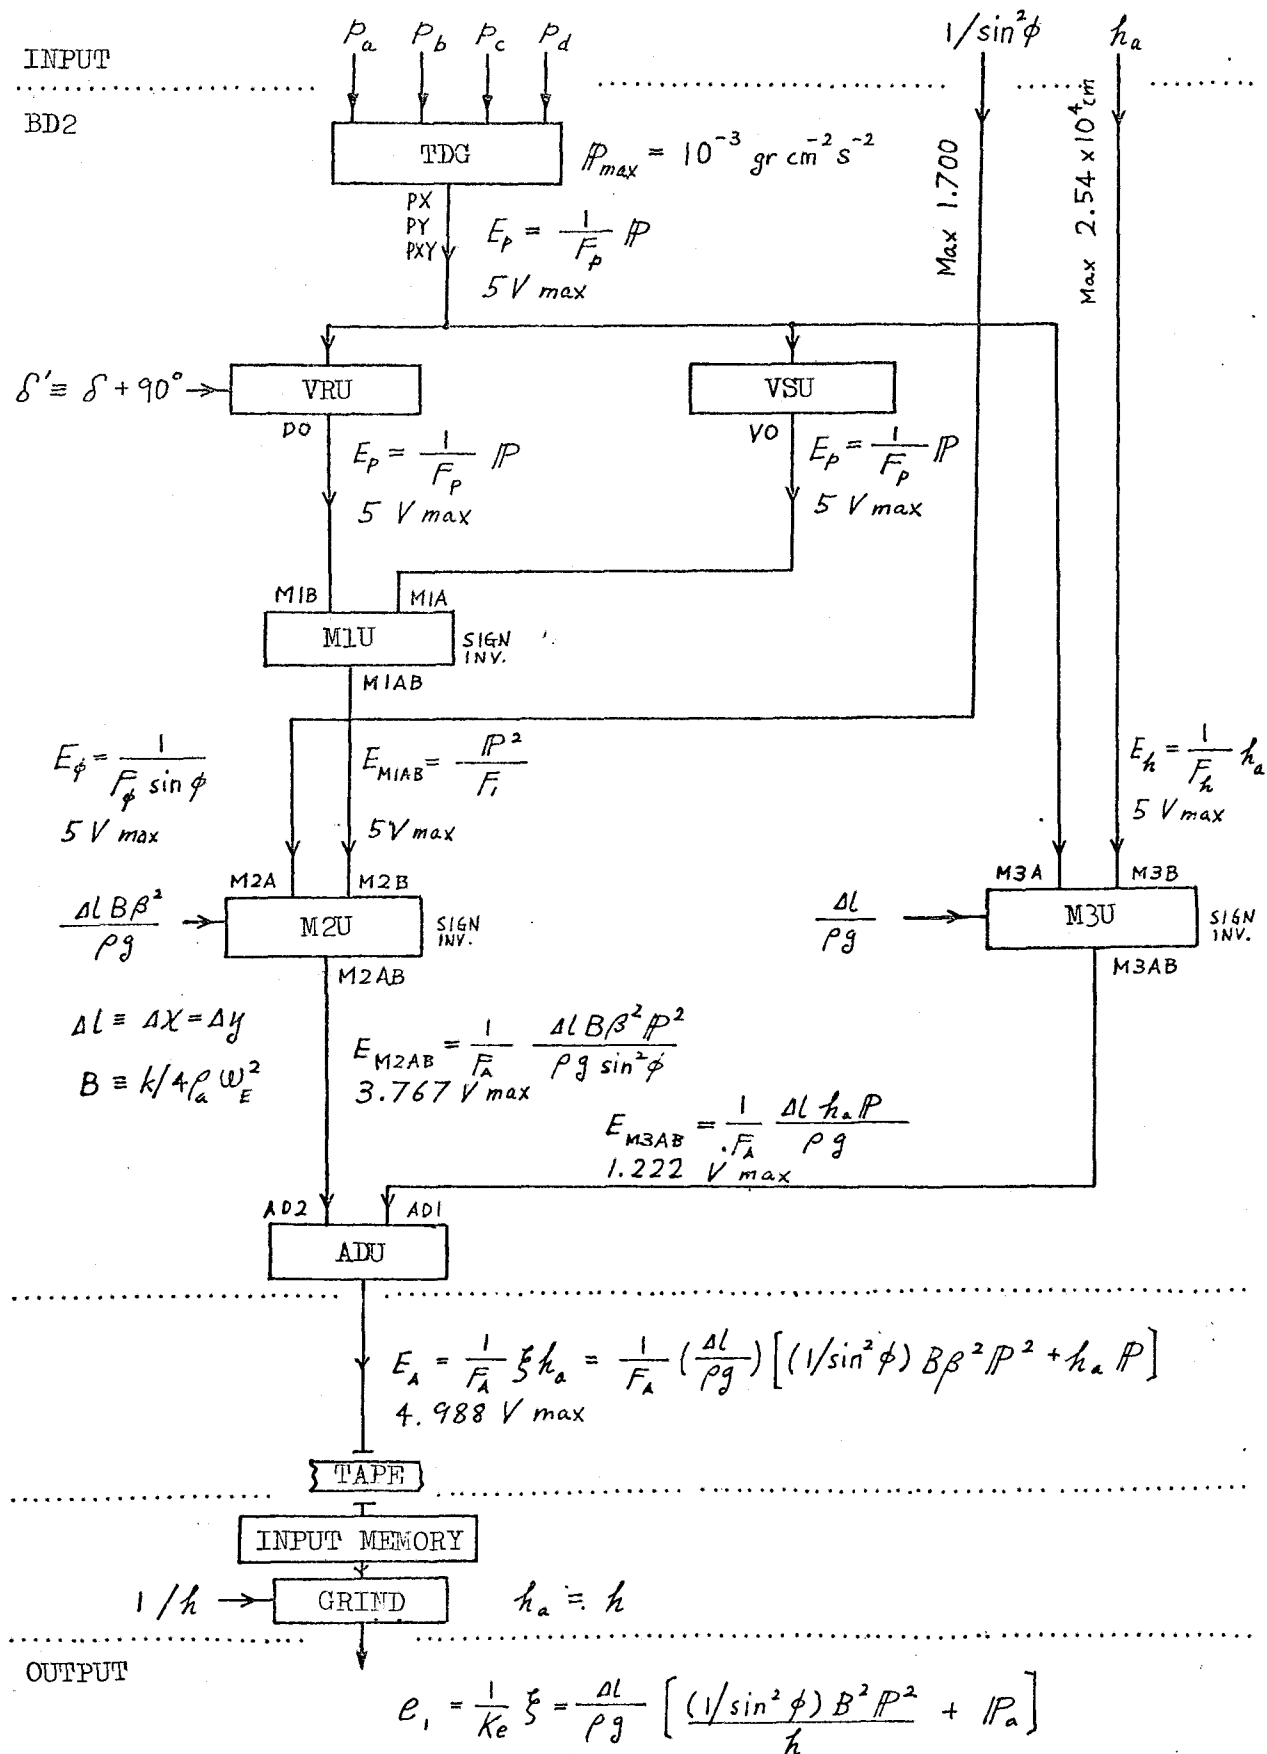 P_a P_b P_c P_d 1/sin²φ h_a
INPUT
BD2
TDG
ℙ_max = 10⁻³ gr cm⁻² s⁻²
Max 1.700
Max 2.54 x 10⁴ cm
PX
PY
PXY
E_p = 1/F_p ℙ
5 V max
δ' ≡ δ + 90°
VRU
VSU
DO
VO
E_p = 1/F_p ℙ
5 V max
E_p = 1/F_p ℙ
5 V max
M1B
M1A
M1U
SIGN
INV.
M1AB
E_φ = 1/(F_φ sin φ)
5 V max
E_M1AB = ℙ²/F₁
5V max
E_h = 1/F_h h_a
5 V max
M2A
M2B
M3A
M3B
Δl B β²/ρg
M2U
SIGN
INV.
Δl/ρg
M3U
SIGN
INV.
M2AB
M3AB
Δl ≡ Δx = Δy
B ≡ k/4ρ_a ω_E²
E_M2AB = 1/F_A Δl B β² ℙ²/(ρg sin²φ)
3.767 V max
E_M3AB = 1/F_A Δl h_a ℙ/ρg
1.222 V max
AD2
AD1
ADU
E_A = 1/F_A ξ h_a = 1/F_A (Δl/ρg) [(1/sin²φ) B β² ℙ² + h_a ℙ]
4.988 V max
TAPE
INPUT MEMORY
1/h
GRIND
h_a ≡ h
OUTPUT
e₁ = 1/Ke ξ = Δl/ρg [(1/sin²φ) B² ℙ²/h + ℙ_a]